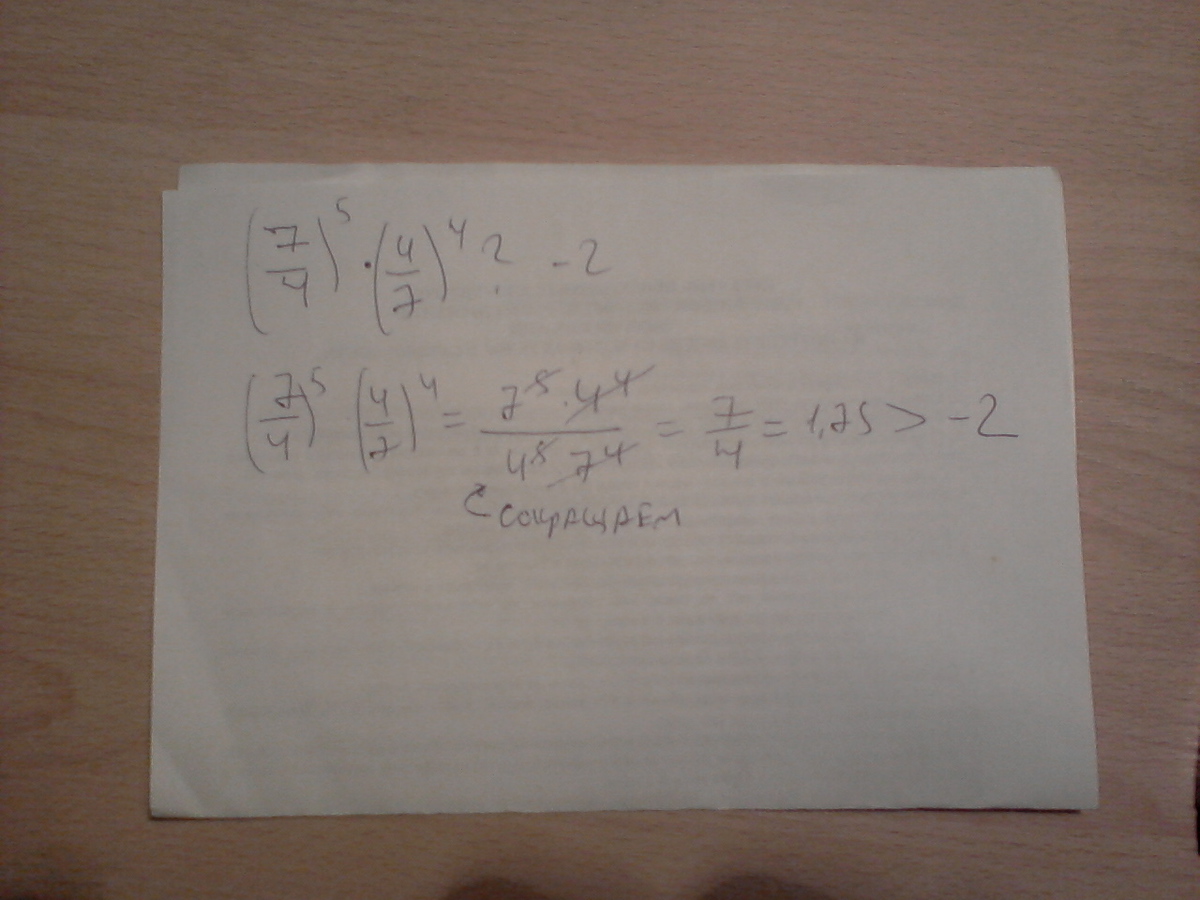 (7/4)^5 · (4/7)^4 ? -2
(7/4)^5 (4/7)^4 = 7^5 · 4^4 / 4^5 7^4 = 7/4 = 1,75 > -2
СОКРАЩАЕМ